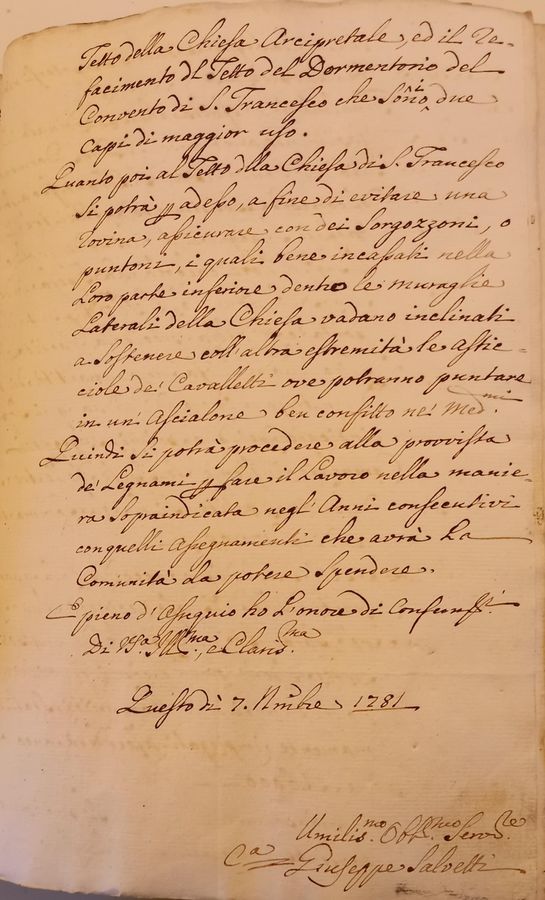 Tetto della Chiesa Arcipretale, ed il Re-
facimento dl Tetto del Dormentorio del
Convento di S. Francesco che sono i due
capi di maggior uso.
Quanto poi al Tetto dlla Chiesa di S. Francesco
si potrà p adesso, a fine di evitare una
rovina, assicurare con dei Sorgozzoni, o
puntoni, i quali bene incassati nella
loro parte inferiore dentro le muraglie
Laterali della Chiesa vadano inclinati
a sostenere coll'altra estremità le astic-
ciole de' Cavalletti ove potranno puntare
in un' Ascialone ben confitto ne' Medmi.
Quindi si potrà procedere alla provvista
de' Legnami p fare il Lavoro nella manie-
ra sopraindicata negl' Anni consecutivi
con quelli assegnamenti che avrà La
Comunità da potere spendere.
E pieno d'ossequio ho l'onore di
Di VSa. Illma., e Clarisma
Questo dì 7. Nmbre 1781
Umilismo. Obblmo Servre.
Giuseppe Salvetti